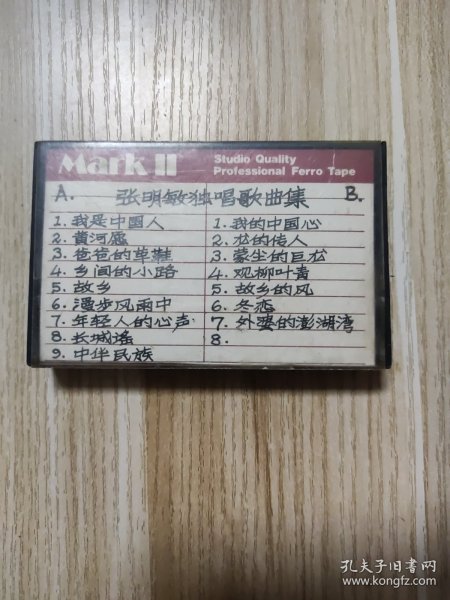 Mark II
Studio Quality
Professional Ferro Tape
A. 张明敏独唱歌曲集 B.
1. 我是中国人
2. 黄河愿
3. 爸爸的草鞋
4. 乡间的小路
5. 故乡
6. 漫步风雨中
7. 年轻人的心声
8. 长城谣
9. 中华民族
1. 我的中国心
2. 龙的传人
3. 蒙尘的巨龙
4. 观柳叶青
5. 故乡的风
6. 冬恋
7. 外婆的澎湖湾
8.
孔夫子旧书网
www.kongfz.com